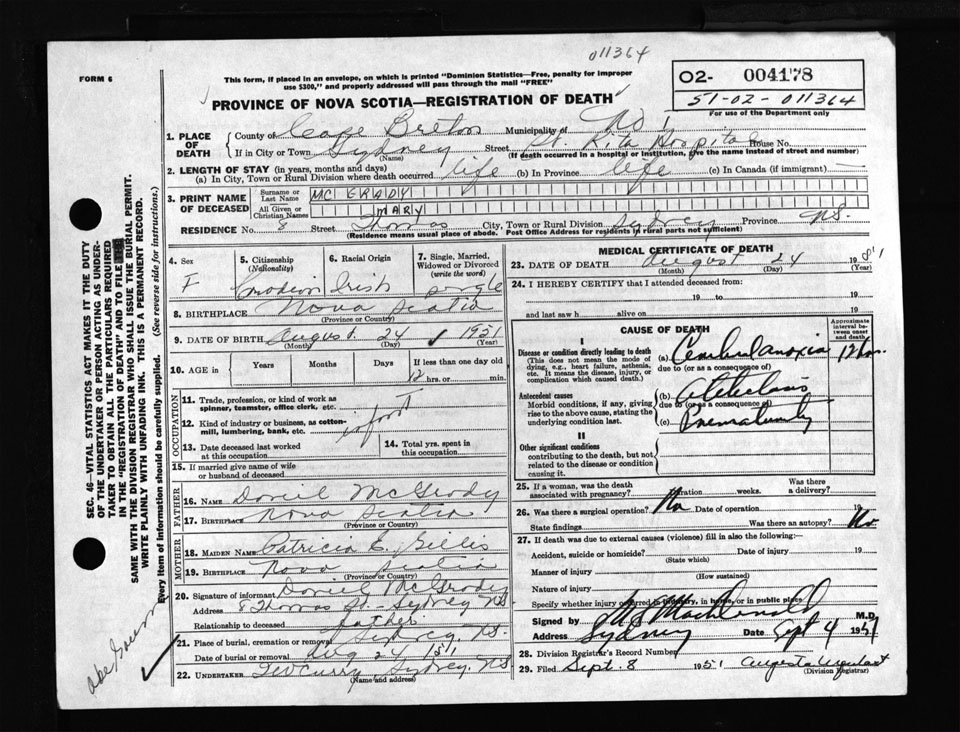 011364
FORM 6
This form, if placed in an envelope, on which is printed "Dominion Statistics—Free, penalty for improper
use $300," and properly addressed will pass through the mail "FREE"
O2- 004178
51-02-011364
For use of the Department only
PROVINCE OF NOVA SCOTIA—REGISTRATION OF DEATH
1. PLACE OF DEATH
County of Cape Breton Municipality of
If in City or Town Sydney Street St. Rita Hospital House No.
(Name) (If death occurred in a hospital or institution, give the name instead of street and number)
2. LENGTH OF STAY (in years, months and days)
(a) In City, Town or Rural Division where death occurred life (b) In Province life (c) In Canada (if immigrant) —
3. PRINT NAME OF DECEASED
Surname or Last Name MC GRADY
All Given or Christian Names MARY
RESIDENCE No. 8 Street Thomas City, Town or Rural Division Sydney Province N.S.
(Residence means usual place of abode. Post Office Address for residents in rural parts not sufficient)
4. Sex F
5. Citizenship (Nationality) Canadian
6. Racial Origin Irish
7. Single, Married, Widowed or Divorced (write the word) single
8. BIRTHPLACE Nova Scotia
(Province or Country)
9. DATE OF BIRTH August 24 1951
(Month) (Day) (Year)
10. AGE in Years Months Days If less than one day old
12 hrs. or min.
OCCUPATION
11. Trade, profession, or kind of work as
spinner, teamster, office clerk, etc.
12. Kind of industry or business, as cotten-
mill, lumbering, bank, etc. infant
13. Date deceased last worked
at this occupation
14. Total yrs. spent in
this occupation
15. If married give name of wife
or husband of deceased
FATHER
16. NAME Daniel McGrady
17. BIRTHPLACE Nova Scotia
(Province or Country)
MOTHER
18. MAIDEN NAME Patricia E. Gillis
19. BIRTHPLACE Nova Scotia
(Province or Country)
20. Signature of informant Daniel McGrady
Address 8 Thomas St. - Sydney NS
Relationship to deceased father
21. Place of burial, cremation or removal Sydney, N.S.
Date of burial or removal Aug 24 1951
22. UNDERTAKER Curry, Sydney, N.S.
(Name and address)
MEDICAL CERTIFICATE OF DEATH
23. DATE OF DEATH August 24 1951
(Month) (Day) (Year)
24. I HEREBY CERTIFY that I attended deceased from:
19 to 19
and last saw h alive on 19
CAUSE OF DEATH
Approximate interval between onset and death
I
Disease or condition directly leading to death
(This does not mean the mode of
dying, e.g., heart failure, asthenia,
etc. It means the disease, injury, or
complication which caused death.)
(a) Cerebral anoxia 12 hrs.
due to (or as a consequence of)
Antecedent causes
Morbid conditions, if any, giving
rise to the above cause, stating the
underlying condition last.
(b) Atelectasis
due to (or as a consequence of)
(c) Prematurity
II
Other significant conditions
contributing to the death, but not
related to the disease or condition
causing it.
25. If a woman, was the death
associated with pregnancy? Duration weeks. Was there a delivery?
26. Was there a surgical operation? No Date of operation 19
State findings Was there an autopsy? No
27. If death was due to external causes (violence) fill in also the following:
Accident, suicide or homicide? Date of injury 19
(State which)
Manner of injury
(How sustained)
Nature of injury
Specify whether injury occurred in industry, in home, or in public place
Signed by MacDonald M.D.
Address Sydney Date Sept 4 1951
28. Division Registrar's Record Number
29. Filed Sept. 8 1951 Augusta Urquhart
(Division Registrar)
SEC. 46—VITAL STATISTICS ACT MAKES IT THE DUTY
OF THE UNDERTAKER OR PERSON ACTING AS UNDER-
TAKER TO OBTAIN ALL THE PARTICULARS REQUIRED
IN THE "REGISTRATION OF DEATH" AND TO FILE
SAME WITH THE DIVISION REGISTRAR WHO SHALL ISSUE THE BURIAL PERMIT.
WRITE PLAINLY WITH UNFADING INK. THIS IS A PERMANENT RECORD.
Every item of information should be carefully supplied. (See reverse side for instructions.)